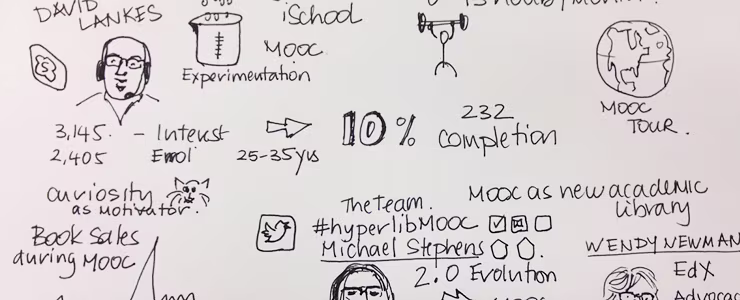 DAVID
LANKES
iSchool
MOOC
Experimentation
MOOC
TOUR.
3,145. - Interest
2,405 Enrol
25-35yrs
10%
232
completion
curiosity
as motivator.
Book Sales
during MOOC
The team.
#hyperlibMOOC
Michael Stephens
2.0 Evolution
MOOC as new academic
library
WENDY NEWMAN
EdX